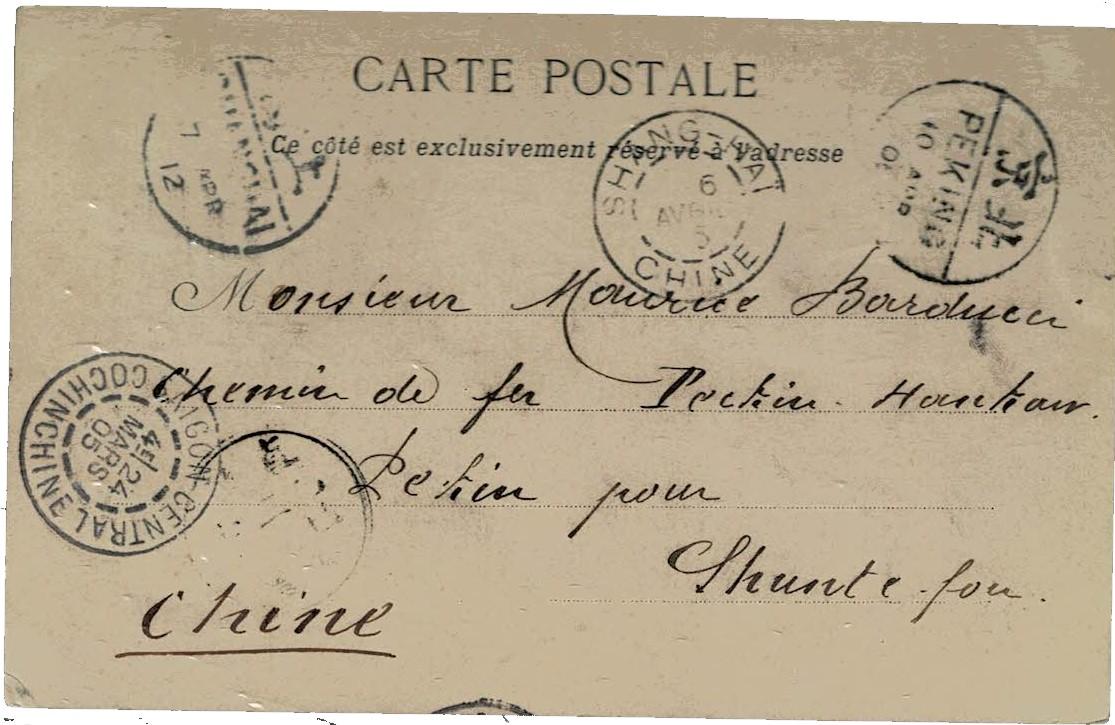 CARTE POSTALE
Ce côté est exclusivement réservé à l'adresse
SHANG-HAÏ
6
AVRIL
5
CHINE
北京
PEKING
10 APR
7
APR
12
Monsieur Maurice Barducci
Chemin de fer Peckin-Hankow.
SAIGON-CENTRAL
COCHINCHINE
4E/24
MARS
05
Pekin pour
Shunte-fou.
Chine